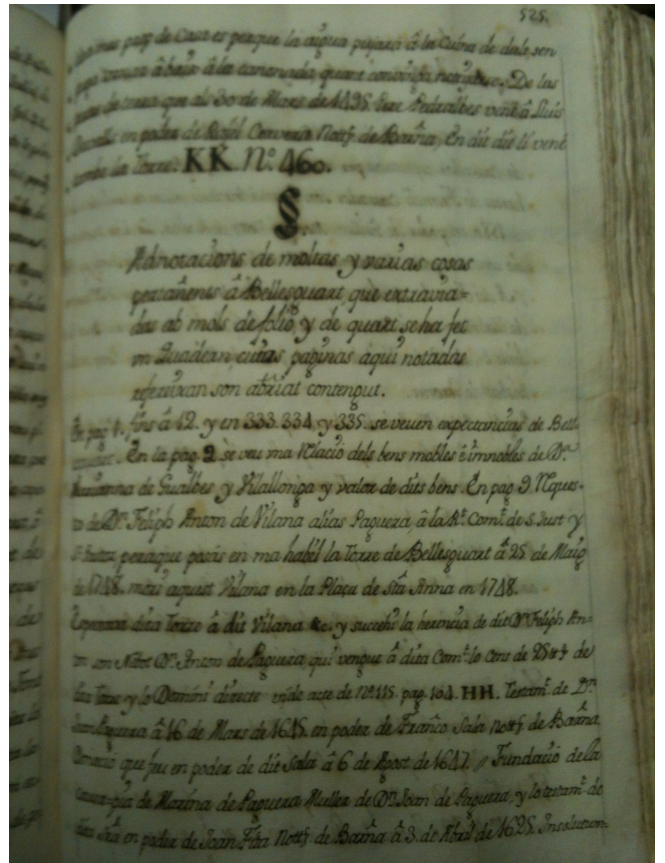 525.
pag. de Casa es perque la aigua pujará á la Cuina de dalt, sen
á baix á la cananada, quant convinga netejarse. De las
de terra que al 30 de Mars de 1495. Pere Pedralbes vené á Lluis
en poder de Rafel Cervera Nott. de Barña, En dit die li vené
també la Torre. KK. Nº. 460.
§
Adnotacions de moltas y varias cosas
pertañents á Bellesguart, que extravia=
das ab mols de folio, y de quart, se ha fet
un Quadern, cuias paginas aqui notadas
referiran son abriat contengut.
En pag. 1. fins á 12. y en 333. 334. y 335. se veuen expectancias de Bell-
esguart. En la pag. 2. se veu ma Relació dels bens mobles é immobles de Dª.
Marianna de Gualbes y Vilallonga y valor de dits bens. En pag. 9. Reques-
ta de Dn. Felip Anton de Vilana alias Paguera á la Rt. Comt. de S. Just y
S. Pastor peraque posás en ma habil la Torre de Bellesguart á 25 de Maig
de 1748. morí aquest Vilana en la Plaça de Sta. Anna en 1748.
dita Torre á dit Vilana &c. y succehí la herencia de dit Dn. Felip An-
ton son Nebot Dn. Anton de Paguera qui vengué á dita Comt. lo cens de de
dita Torre y lo Domini directe vide acte de Nº 115. pag. 164. HH. Testamt. de Dn.
Joan Paguera á 16 de Mars de 1645. en poder de Franco. Sala Nott. de Barña.
Donació que feu en poder de dit Sala á 6 de Agost de 1647. // Fundació de la
causa-pia de Marina de Paguera Muller de Dn. Joan de Paguera, y lo testamt. de
dita Sra. en poder de Joan Fita Nott. de Barña á 3. de Abril de 1625.